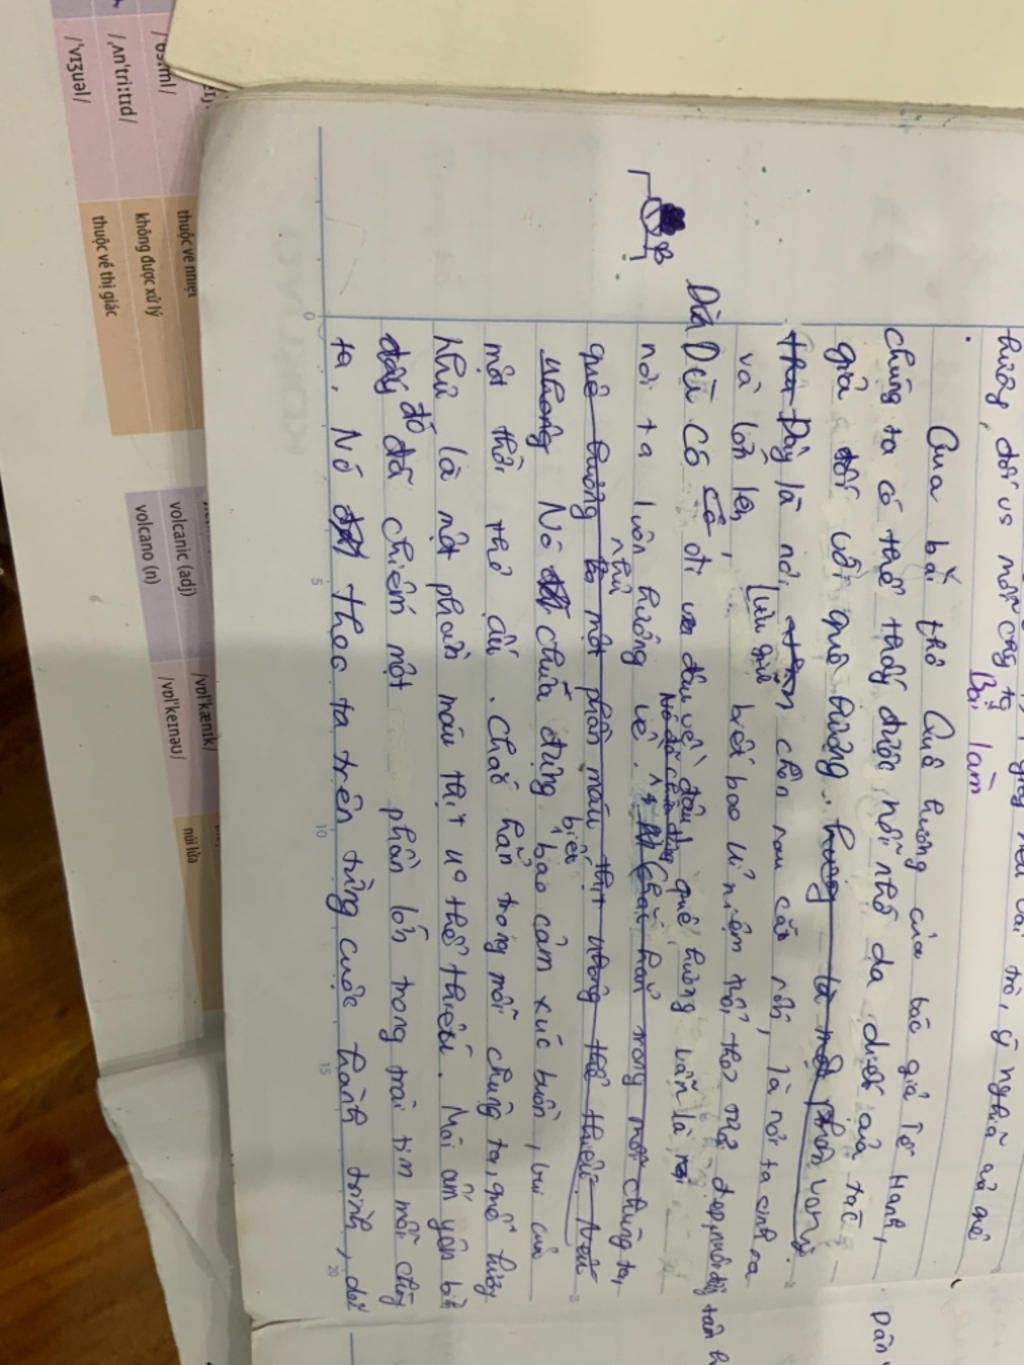 hương, đối vs mỗi chúng ta
nghĩa của quê
Bài làm
Qua bài thơ Quê hương của tác giả Tế Hanh,
chúng ta có thể thấy được nỗi nhớ da diết của tác
giả đối với quê hương. hương là một phần
Đây là nơi chôn rau cắt rốn, là nơi ta sinh ra
và lớn lên, lưu giữ biết bao kỉ niệm tuổi thơ tươi đẹp, nuôi dưỡng tâm h
Dù Dù có đi đâu về đâu, quê hương vẫn là
nơi ta luôn hướng về. Nó đã chứa đựng Chắc hẳn trong mỗi chúng ta,
quê hương như là một phần máu thịt không thể thiếu. Nếu
không Nó chứa đựng biết bao cảm xúc buồn, vui của
một thời thơ ấu. Chắc hẳn trong mỗi chúng ta, quê hương
như là một phần máu thịt ko thể thiếu. Mái ấm yên bình
đấy đó đã chiếm một phần lớn trong trái tim mỗi chúng
ta. Nó theo ta trên từng cuộc hành trình, dẫu
0 5 10 15 20
/ˌʌnˈtriːtɪd/
/ˈvɪʒuəl/
không được xử lý
thuộc về thị giác
volcanic (adj)
volcano (n)
/vɒlˈkænɪk/
/vɒlˈkeɪnəʊ/
núi lửa